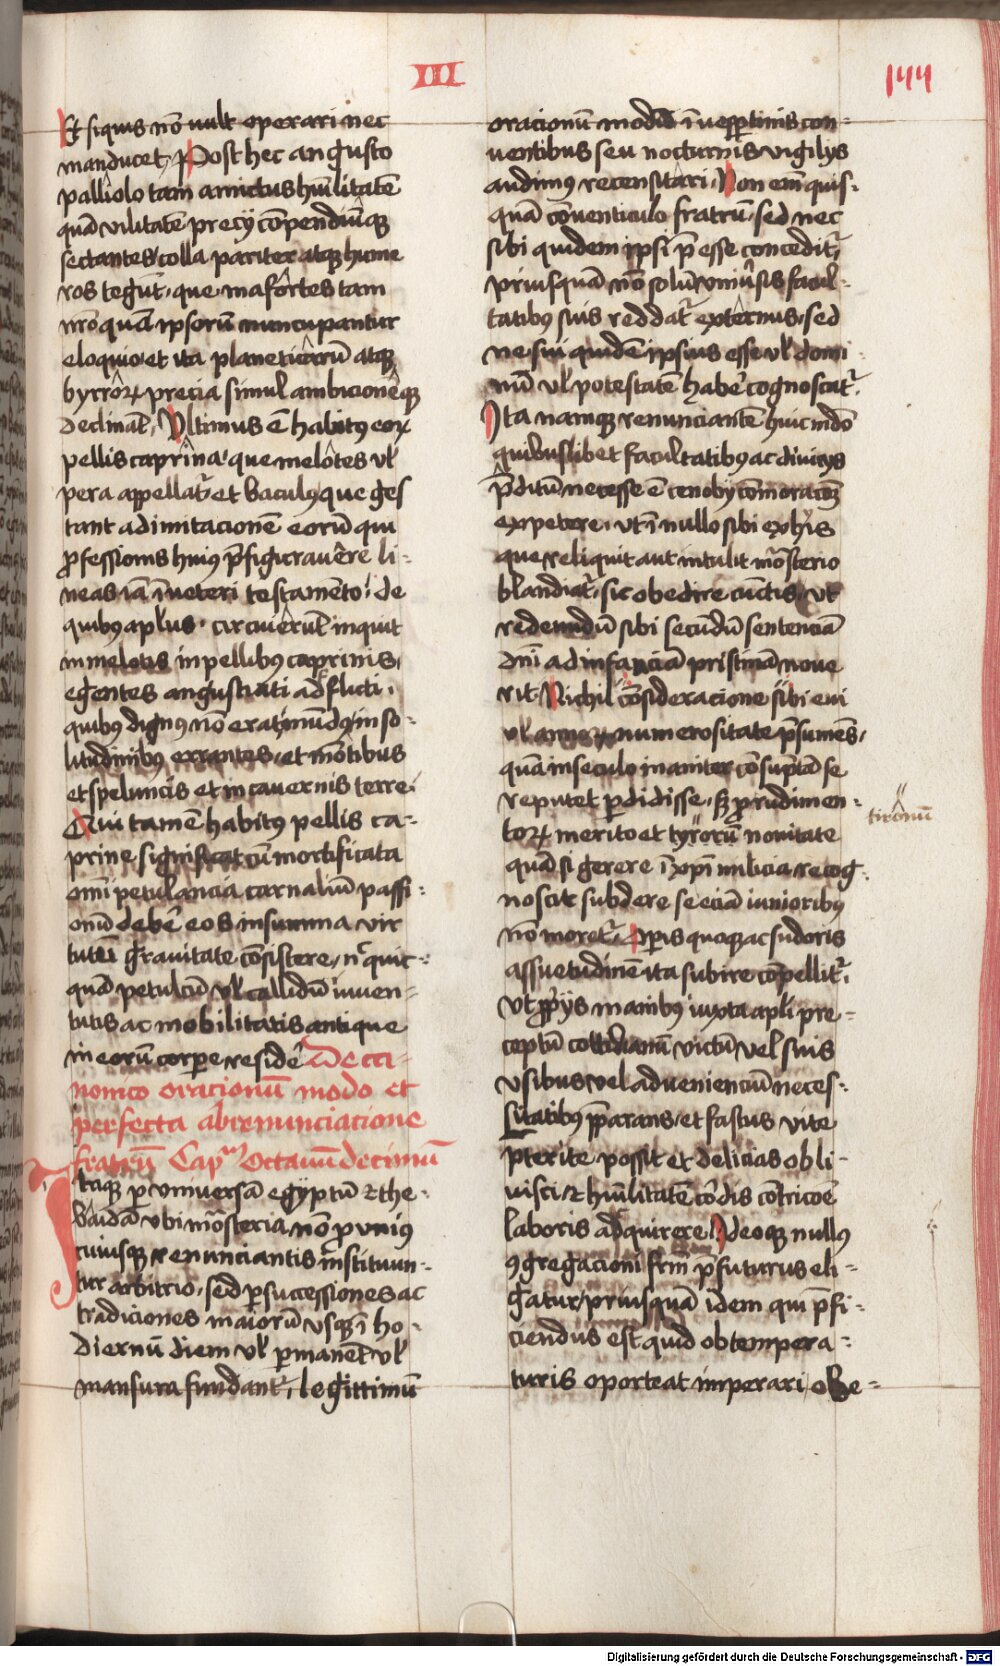 III
144
Et siquis nō vult operari nec
manducet, Post hec angusto
palliolo tam amictus hūilitatē
quā vilitatē precij cōpendiūq̢
sectantes colla pariter atq̢ hume
ros tegūt, que mafortes tam
nr̄o quā ipsorū nuncupantur
eloquio et ita planeticarū atq̢
byrroꝝ precia simul ambicionēq̢
declināt, Vltimus ē habitus eoꝝ
pellis caprina, que melotes vl̄
pera appellat̉ et baculus que ges
tant ad imitacionē eorū qui
ꝓfessionis huius p̄figurauēre li-
neas iā ī veteri testamēto, de
quibꝰ apl̄us, circuierūt inquit
in melotis in pellibꝰ caprinis,
egentes angustiati adflicti,
quibꝰ dignꝰ nō erat mūdꝰ in so-
litudinibꝰ errantes, et mōtibus
et speluncis et in cauernis terre,
Qui tamē habitꝰ pellis ca-
prine significat cū mortificata
omī petulancia carnaliū passi-
onū debē eos in summa vir
tutū grauitate cōsistere, nͨ quic-
quā petulcū vl̄ callidū iuuen-
tutis ac mobilitatis antique
in eorū corpe residē De ca-
nonico oracionū modo et
perfecta abrenunciacione
fratrū Capᵐ Octauūdecimū
Itaq̢ ꝑ vniuersā egyptū ⁊ the-
baidā vbi mōsteria nō ꝓ vniꝰ
cuiusq̢ renunciantis instituun-
tur arbitrio, sed ꝑ successiones ac
tradiciones maiorū vsq̢ ī ho-
diernū diem vl̄ ꝑmanēt vl̄
mansura fundant̉, legittimū
oracionū modū ī vesptinis con-
uentibus seu nocturnis vigilijs
audimꝰ recensitari, Non em̄ quis-
quā cōuenticulo fratrū, sed nec
sibi quidem ipsi p̄esse concedit̉,
priusquā nō solū vniūsis facul-
tatibꝰ suis reddat̉ externus, sed
ne sui quidē ipsius esse vl̄ domi
nū vl̄ potestatē habē cognoscat̉.
Ita namq̢ renunciantē huic mdō
quibuslibet facultatibꝰ ac diuicijs
p̄ditū necesse ē cenobij cōmoracōꝫ
expetere, vt ī nullo sibi ex hijs
que reliquit aut intulit mōsterio
blandiat̉, sic obedire cūctis, vt
redeundū sibi secūdū sentenciā
dn̄i ad infanciā pristinā noue
rit Nichil cōsideracione sibi eui
vl̄ annoꝝ numerositate p̄sumēs,
quā in seculo inaniter cōsuptā se
reputet ꝑdidisse, sꝫ ꝓ rudimen-
toꝝ merito et tyrorū nouitate
tironū
quā si gerere ī xp̄i milicia recog-
noscit subdere se eciā iunioribꝰ
nō moret̉, Opis quoq̢ ac sudoris
assuetudinē ita subire cōpellit̉,
vt ꝓprijs manibꝰ iuxta apl̄i pre-
ceptū cottidianū victū vel suis
vsibus vel adueniencū neces-
sitatibꝰ p̄parans, et fastus vite
p̄terite possit et delicias obli-
uisci, ⁊ hūilitatē cordis cōtricōe
laboris adquirere, Ideoq̢ nullus
ꝯgregacioni frm̄ p̄futurus eli-
gatur, priusquā idem qui p̄fi-
ciendus est quid obtempera-
turis oporteat imperari obe-
Digitalisierung gefördert durch die Deutsche Forschungsgemeinschaft - DFG